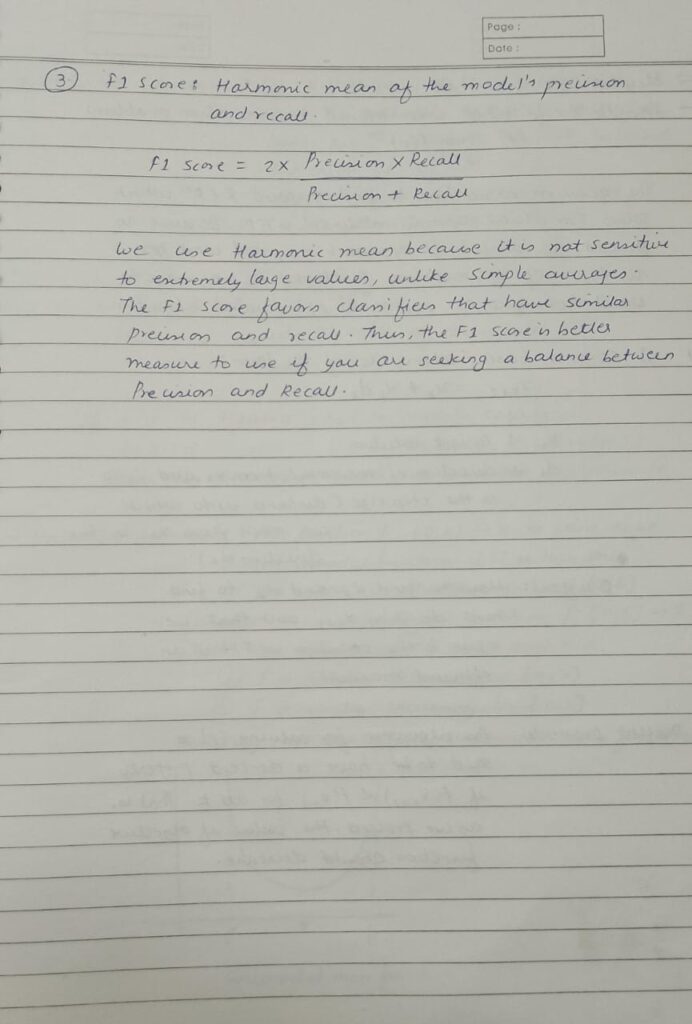 Page :
Date :
3 f1 score: Harmonic mean of the model's precision
and recall.
f1 score = 2 x Precision x Recall
Precision + Recall
We use Harmonic mean because it is not sensitive
to extremely large values, unlike simple averages.
The F1 score favors classifiers that have similar
precision and recall. Thus, the F1 score is better
measure to use if you are seeking a balance between
Precision and Recall.